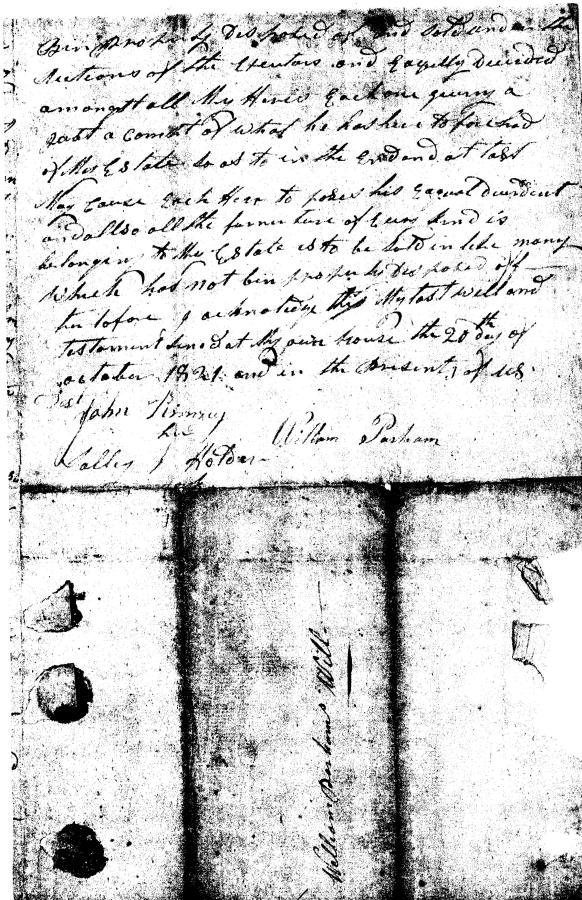 Bin properly Disposed of and Sold and in the
Sections of the Executors and Equelly Devided
amongst all My Heirs Each one giving a
Just a Compt of what he has here to fore had
of My Estate so as to in the End and at last
May Cause Each Heir to poses his Eaqual
and allso all the furne ture of Every kind is
belongin to the Estate is to be Sold in like
Which has not bin properly Disposed off
her tofore I acknoledge this My last will and
testament Sined at My own house the 20th day of
october 1821 and in the presents of us
Test John
her William Parham
Salley Holder
William Parhams Will